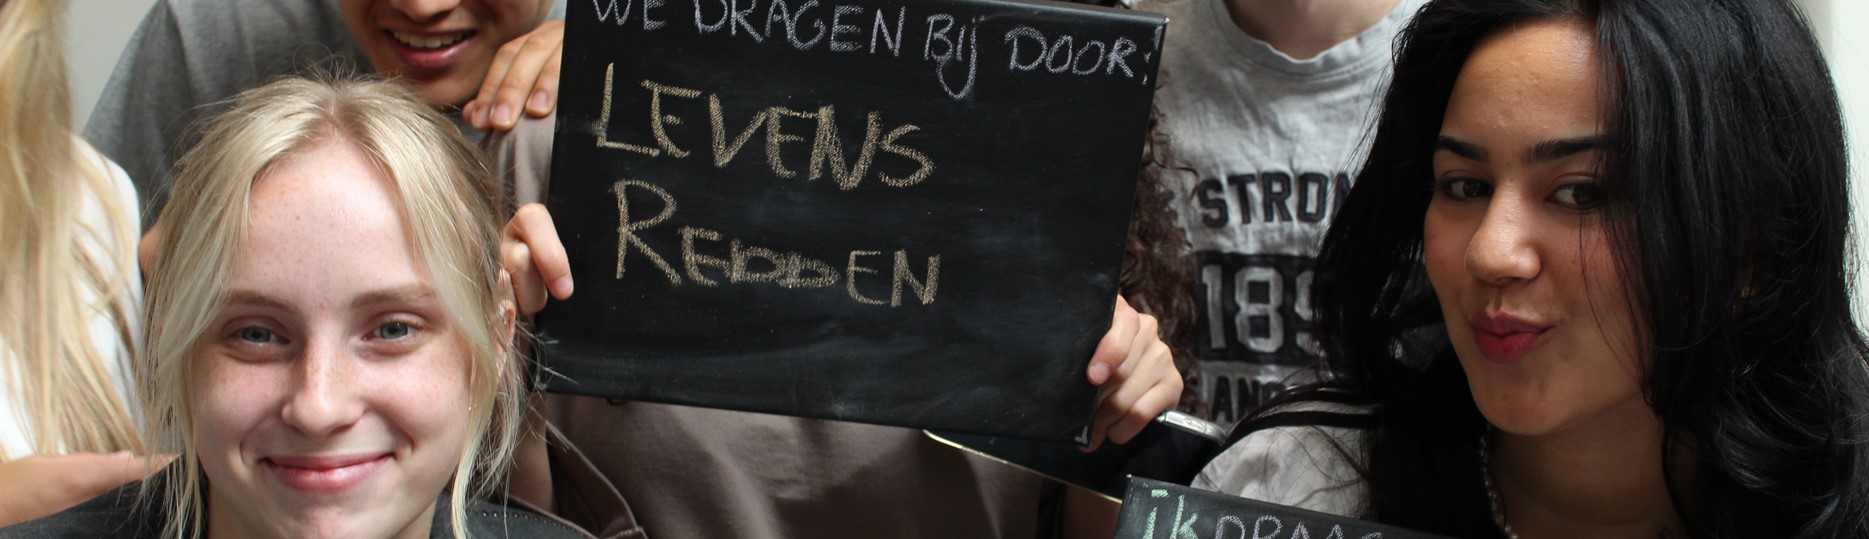 WE DRAGEN BIJ DOOR:
LEVENS
REDDEN
STRON
189
ik DRAAG